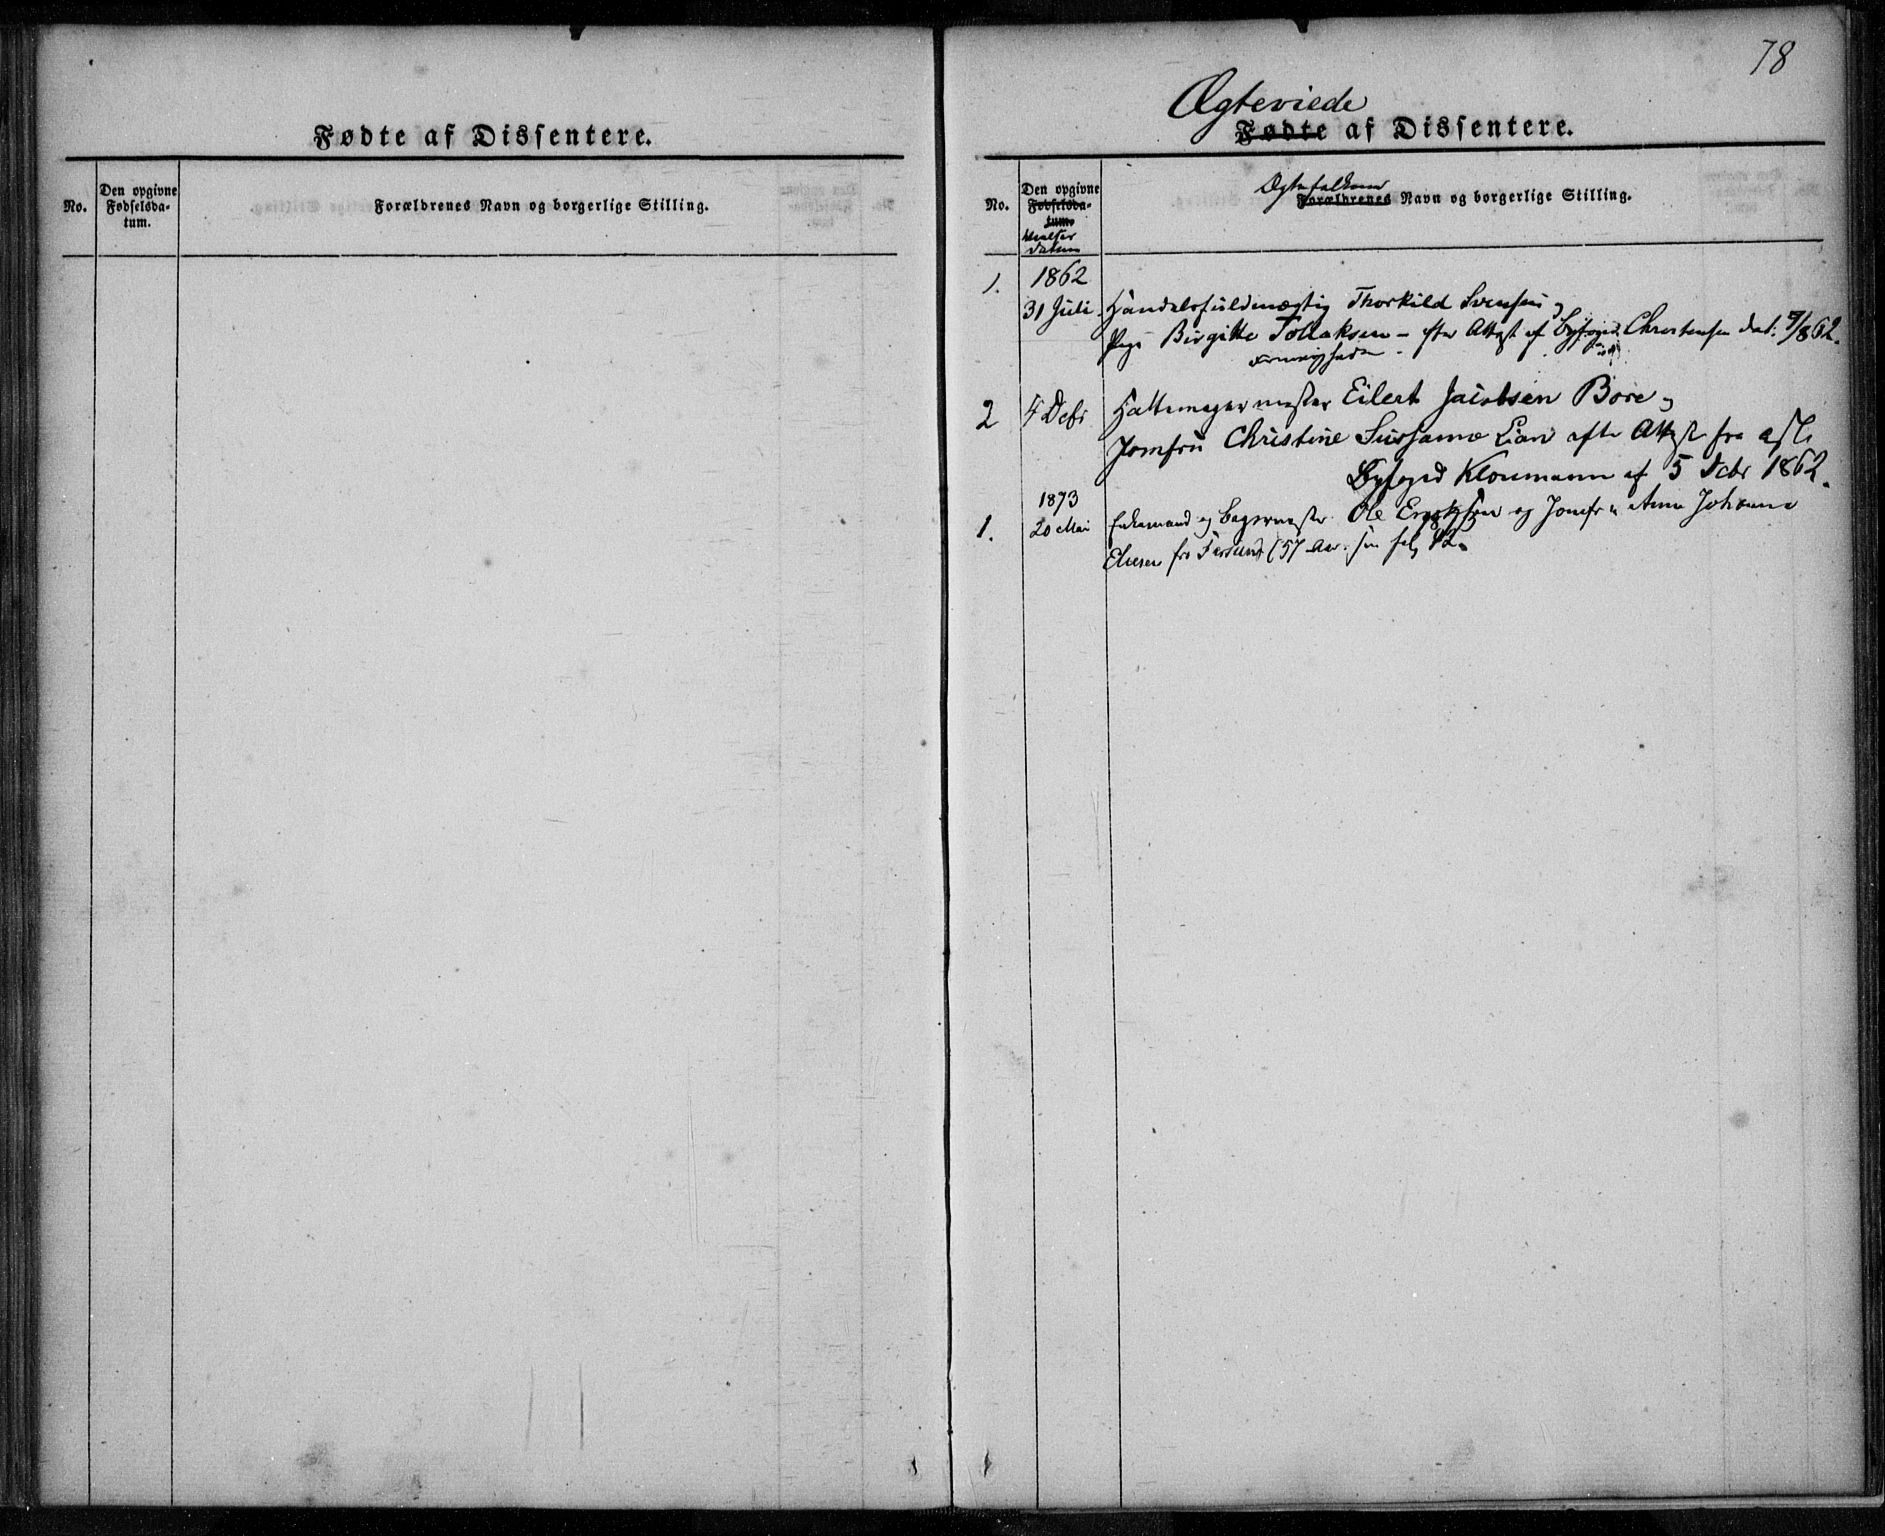 Fødte af Dissentere.
No.
Den opgivne
Fødselsda-
tum.
Forældrenes Navn og borgerlige Stilling.
78
Ægteviede
Fødte af Dissentere.
No.
Den opgivne
Fødselsda-
tum.
Vielses
datum
Ægtefolkenes
Forældrenes Navn og borgerlige Stilling.
1. 1862
31 Juli. Handelsfuldmægtig Thorkild Svensen og
Pige Birgitte Tollaksen – efter Attest af Byfoged Christensen dat. 9/8 62.
2 4 Decbr Hattemagermester Eilert Jacobsen Bore og
Jomfru Christine Susanne Lian efter Attest fra
Byfoged Kloumann af 5 Decbr 1862.
1873
1. 20 Mai Enkemand og Bagermester Ole Ericksen og Jomfru Anne Johanne
Eliesen fra Farsund (57 Aar. see fol 82.